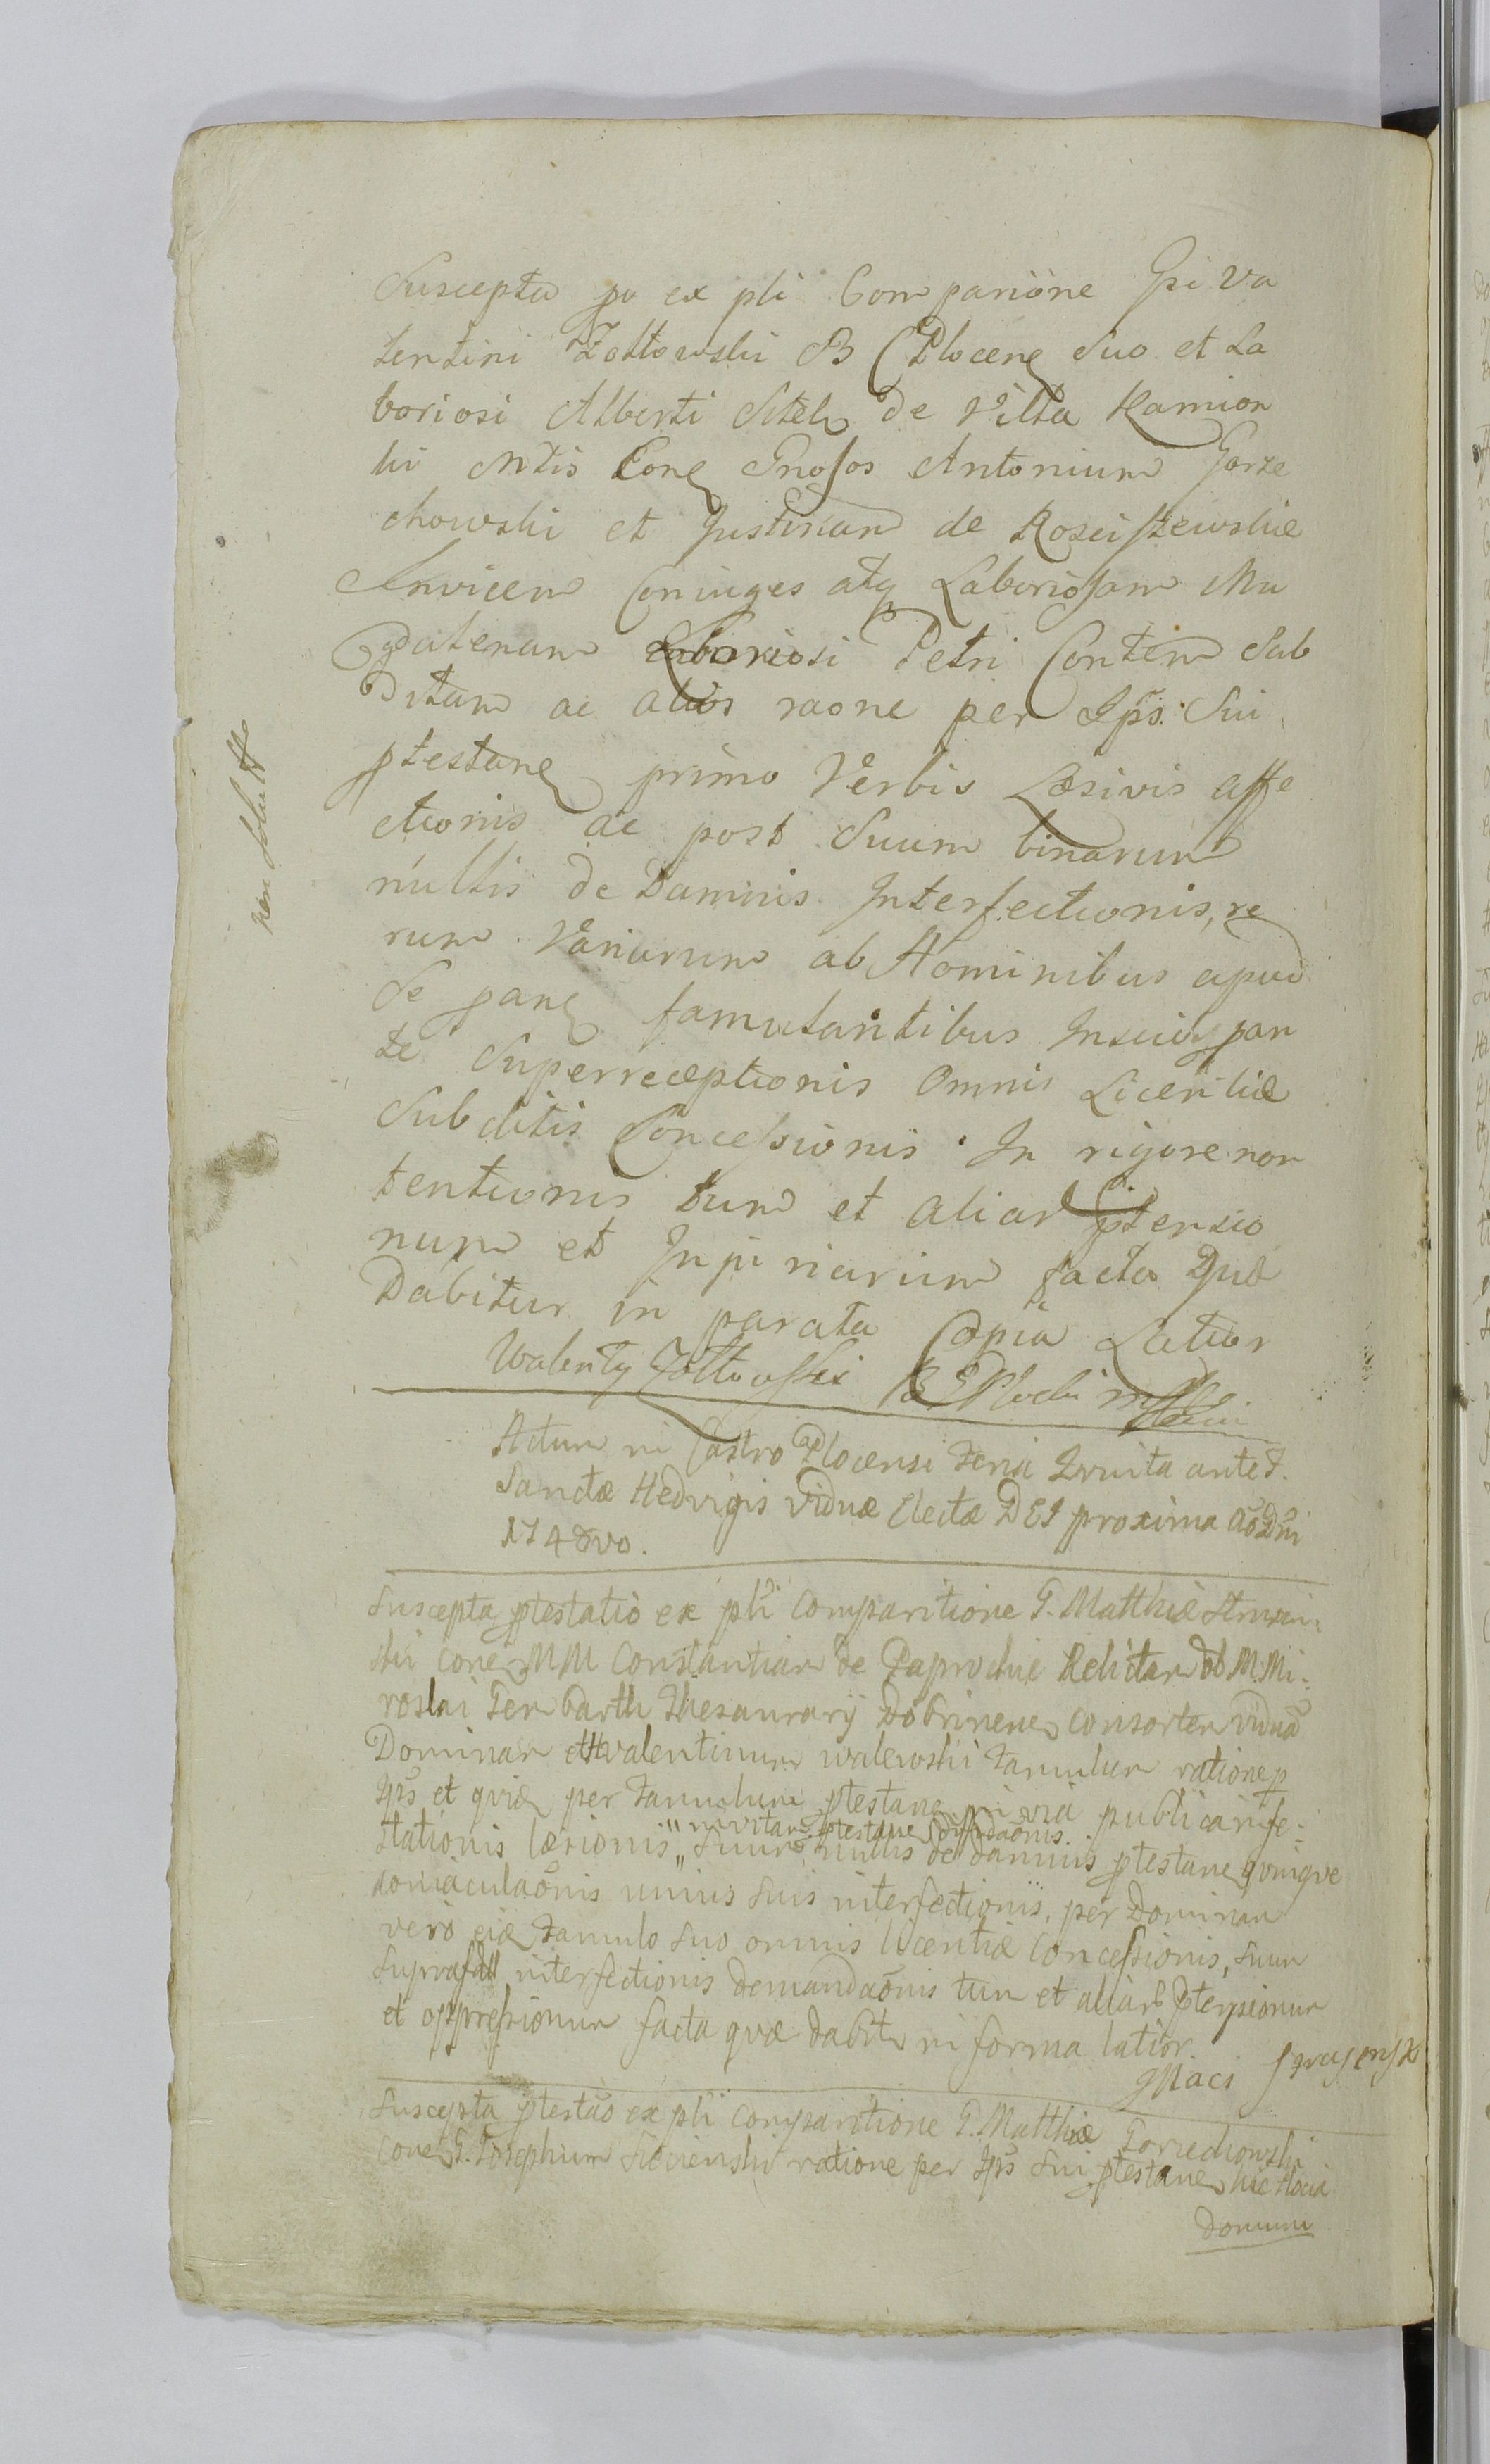 Suscepta pō ex pli Comparioñe Gsi Va
lentini Zołtowski B C Plocen Suo et La
boriosi Alberti Sitek de Villa Kamion
ki Ntis Con Gnosos Antonium Gorze
chowski et Justinam de Rosciszewskie
Invicem Coniuges atq Laboriosam Ma
gdalenam Laboriosi Petri Contem Sub
ditam ac alios raone per Ips: Sui
ptestan primo Verbis Læsivis affe
ctionis ac post Suum binarum
nullis de Damnis Interfectionis, re
rum Variarum ab Hominibus apud
Se pan famulantibus Inscio par
te Superreceptionis Omnis Licentiæ
Subditis Concessionis In rigore non
tentionis tum et aliar ptensio
num et Injuriarum facta Quæ
Dabitur in parata Copia Latior
Walenty Zołtowski B G Plocki mp
Actum in Castro Plocensi Feria Quinta ante F.
Sanctæ Hedvigis Viduæ Electæ DEI proxima Ao Dni
1748vo.
Suscepta ptestatio ex pli Comparitione G. Matthiæ
ski con MM Constantiam de Paprockie Relictam ol M. Mi-
roslai Gembarth Thesaurarij Dobrinen Consortem Viduā
Dominam et Valentinum Walewski Famulum ratione p
Ips et quiq per Famulum ptestan in via publica infe-
" invitan ptestan diffidaōnis
stationis læsionis " Suum nullis de damnis ptestan quinque
comaculaōnis unius suis interfectionis, per Dominam
vero eiq Famulo Suo omnis licentiæ Concessionis, Suum
Suprafatt interfectionis demandaōnis tum et aliar ptensionum
et oppressionum facta quæ dabit in forma latior.
Maci
Suscepta ptestāo ex pli Comparitione G. Matthiæ Gorzechowski
Con G. Josephum ratione per Ips Sui ptestan hic
Domum
non solutt